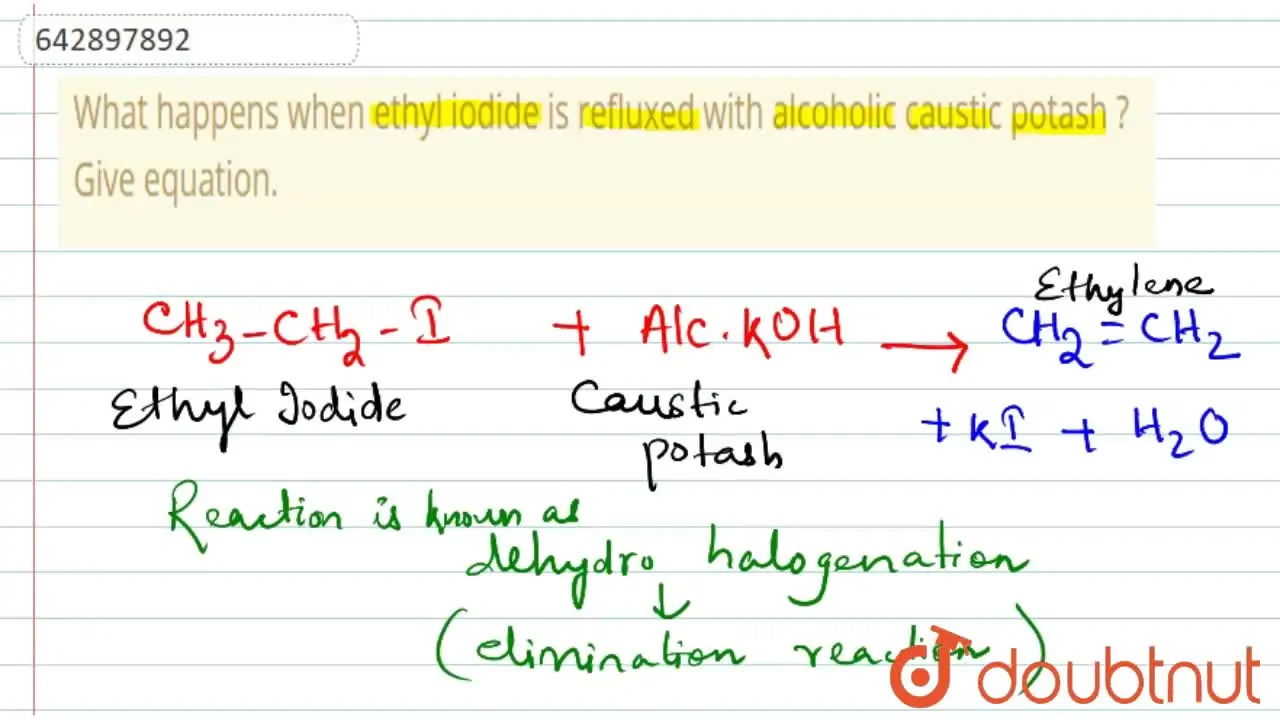 642897892
What happens when ethyl iodide is refluxed with alcoholic caustic potash ?
Give equation.
Ethylene
CH3-CH2-I + Alc.KOH → CH2=CH2
Ethyl Iodide Caustic potash
+ KI + H2O
Reaction is known as
dehydro halogenation
↓
(elimination reaction)
doubtnut